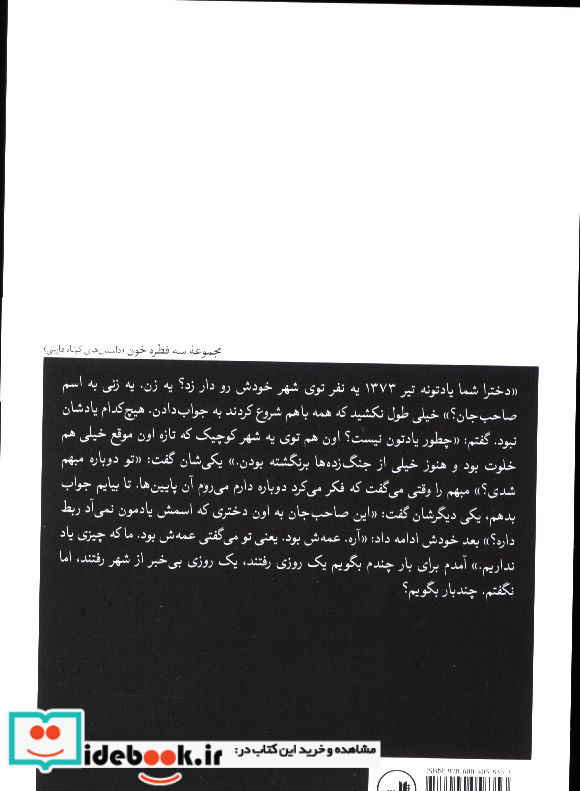 مجموعهٔ سه قطره خون (داستان‌های کوتاه فارسی)
«دخترا شما یادتونه تیر ۱۳۷۳ یه نفر توی شهر خودش رو دار زد؟ یه زن. یه زنی به اسم
صاحب‌جان؟» خیلی طول نکشید که همه باهم شروع کردند به جواب‌دادن. هیچ‌کدام یادشان
نبود. گفتم: «چطور یادتون نیست؟ اون هم توی یه شهر کوچیک که تازه اون موقع خیلی هم
خلوت بود و هنوز خیلی از جنگ‌زده‌ها برنگشته بودن.» یکی‌شان گفت: «تو دوباره مبهم
شدی؟» مبهم را وقتی می‌گفت که فکر می‌کرد دوباره دارم می‌روم آن پایین‌ها. تا بیایم جواب
بدهم، یکی دیگرشان گفت: «این صاحب‌جان به اون دختری که اسمش یادمون نمی‌آد ربط
داره؟» بعد خودش ادامه داد: «آره. عمه‌ش بود. یعنی تو می‌گفتی عمه‌ش بود. ما که چیزی یاد
نداریم.» آمدم برای بار چندم بگویم یک روزی رفتند، یک روزی بی‌خبر از شهر رفتند، اما
نگفتم. چندبار بگویم؟
مشاهده و خرید این کتاب در:
idebook.ir
ISBN: 978-600-405-835-3